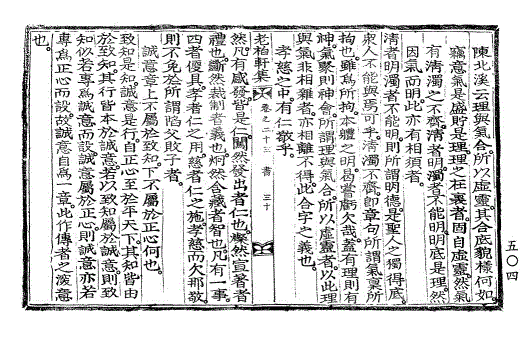 陳北溪云理與氣合所以虛靈其合底貌樣何如
竊意氣是盛貯是理理之在裏者固自虛靈然氣
有淸濁之不齊淸者明濁者不能明明底是理然
因氣而明此亦有相須者
淸者明濁者不能明則所謂明德是聖人之獨得底
衆人不能與焉可乎淸濁不齊卽章句所謂氣稟所
拘也雖爲所拘本體之明曷嘗虧欠哉蓋有理則有
神氣聚則神會所謂理與氣合所以虛靈者以此理
與氣非相雜者亦相離不得此合字之義也
孝慈之中有仁敬乎
老柏軒集 卷之二十三 書 三十
然凡有感發皆是仁闖然發出者仁也燦然宣著者
禮也斷然裁制者義也炯然含藏者智也凡有一事
四者俱具孝者仁之用慈者仁之施孝慈而欠那敬
則不免於所謂陷父敗子者
誠意章上不屬於致知下不屬於正心何也
致知是知誠意是行自正心至於平天下其知皆由
於致知其行皆本於誠意若以致知屬於誠意則致
知似若專爲誠意而設誠意屬於正心則誠意亦若
專爲正心而設故誠意自爲一章此作傳者之深意
也
五〇四